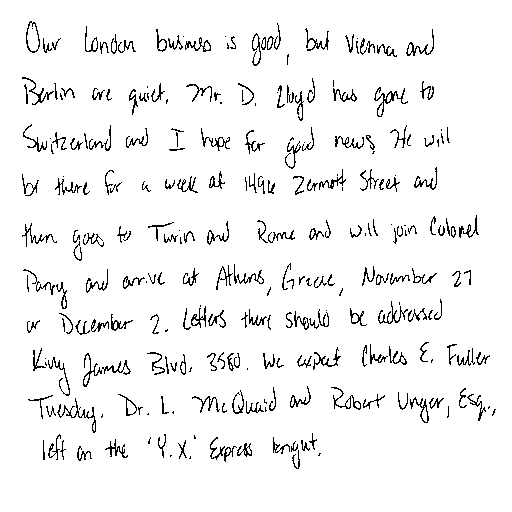 Our London business is good, but Vienna and
Berlin are quiet. Mr. D. Lloyd has gone to
Switzerland and I hope for good news. He will
be there for a week at 1496 Zermott Street and
then goes to Turin and Rome and will join Colonel
Parry and arrive at Athens, Greece, November 27
or December 2. Letters there should be addressed
King James Blvd. 3580. We expect Charles E. Fuller
Tuesday. Dr. L. McQuaid and Robert Unger, Esq.,
left on the 'Y.X.' Express tonight.